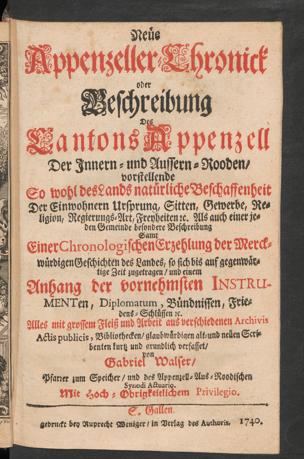 Neüe
Appenzeller-Chronick
oder
Beschreibung
Des
Cantons Appenzell
Der Innern- und Aussern-Rooden/
vorstellende
So wohl des Lands natürliche Beschaffenheit
Der Einwohnern Ursprung, Sitten, Gewerbe, Re-
ligion, Regierungs-Art, Freyheiten ꝛc. Als auch einer je-
den Gemeinde besondere Beschreibung
Samt
Einer Chronologischen Erzehlung der Merck-
würdigen Geschichten des Landes, so sich bis auf gegenwär-
tige Zeit zugetragen/ und einem
Anhang der vornehmsten INSTRU-
MENTen, Diplomatum, Bündnissen, Frie-
dens-Schlüssen ꝛc.
Alles mit grossem Fleiß und Arbeit aus verschiedenen Archivis
Actis publicis, Bibliothecken/ glaubwürdigen alt- und neuen Scri-
benten kurtz und grundlich verfasset/
von
Gabriel Walser/
Pfarrer zum Speicher/ und des Appenzell-Aus-Roodischen
Synodi Actuario.
Mit Hoch-Obrigkeitlichem Privilegio.
S. Gallen,
gedruckt bey Ruprecht Weniger/ in Verlag des Authoris. 1740.